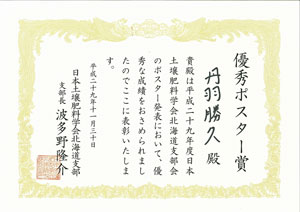 優秀ポスター賞
丹羽勝久 殿
貴殿は平成二十九年度日本
土壌肥料学会北海道支部会
のポスター発表において、優
秀な成績をおさめられまし
たのでここに表彰いたしま
す。
平成二十九年十一月三十日
日本土壌肥料学会北海道支部
支部長 波多野隆介